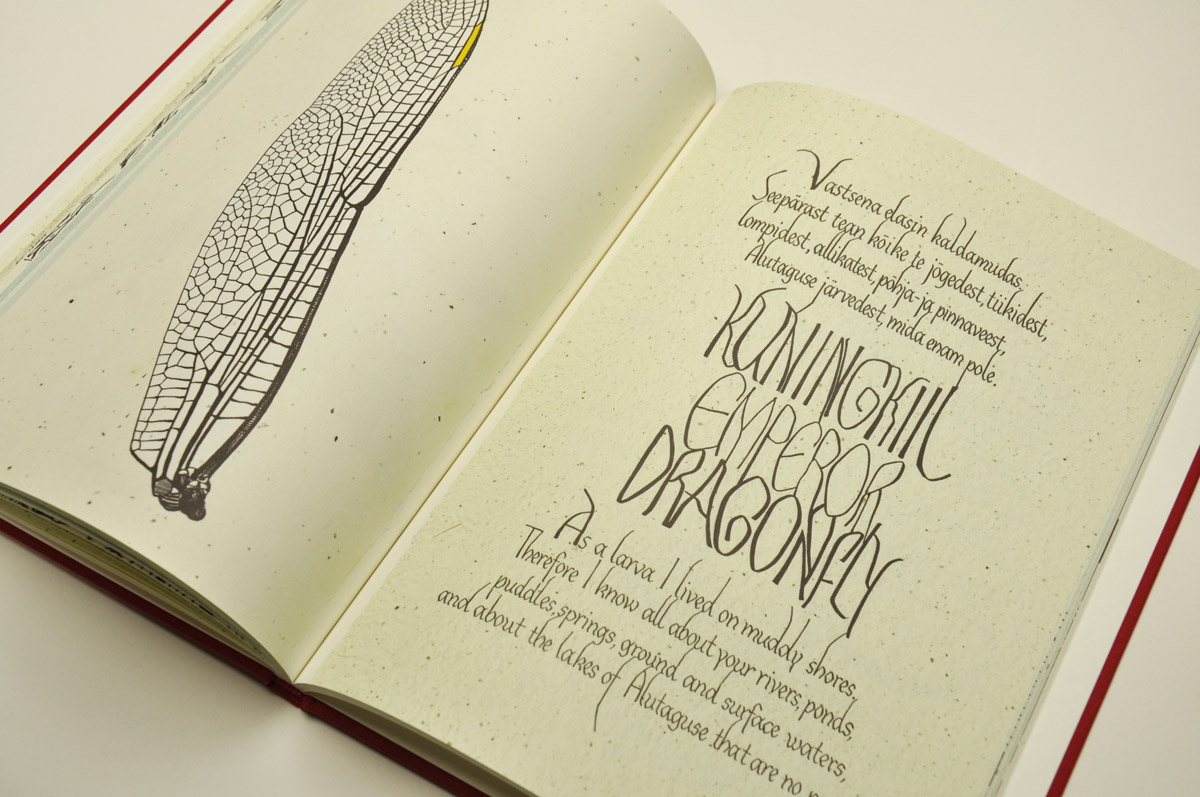 Vastsena elasin kaldamudas.
Seepärast tean kõike te jõgedest, tiikidest,
lompidest, allikatest, põhja- ja pinnaveest,
Alutaguse järvedest, mida enam pole.
KUNINGKIIL
EMPEROR
DRAGONFLY
As a larva I lived on muddy shores.
Therefore I know all about your rivers, ponds,
puddles, springs, ground and surface waters,
and about the lakes of Alutaguse that are no